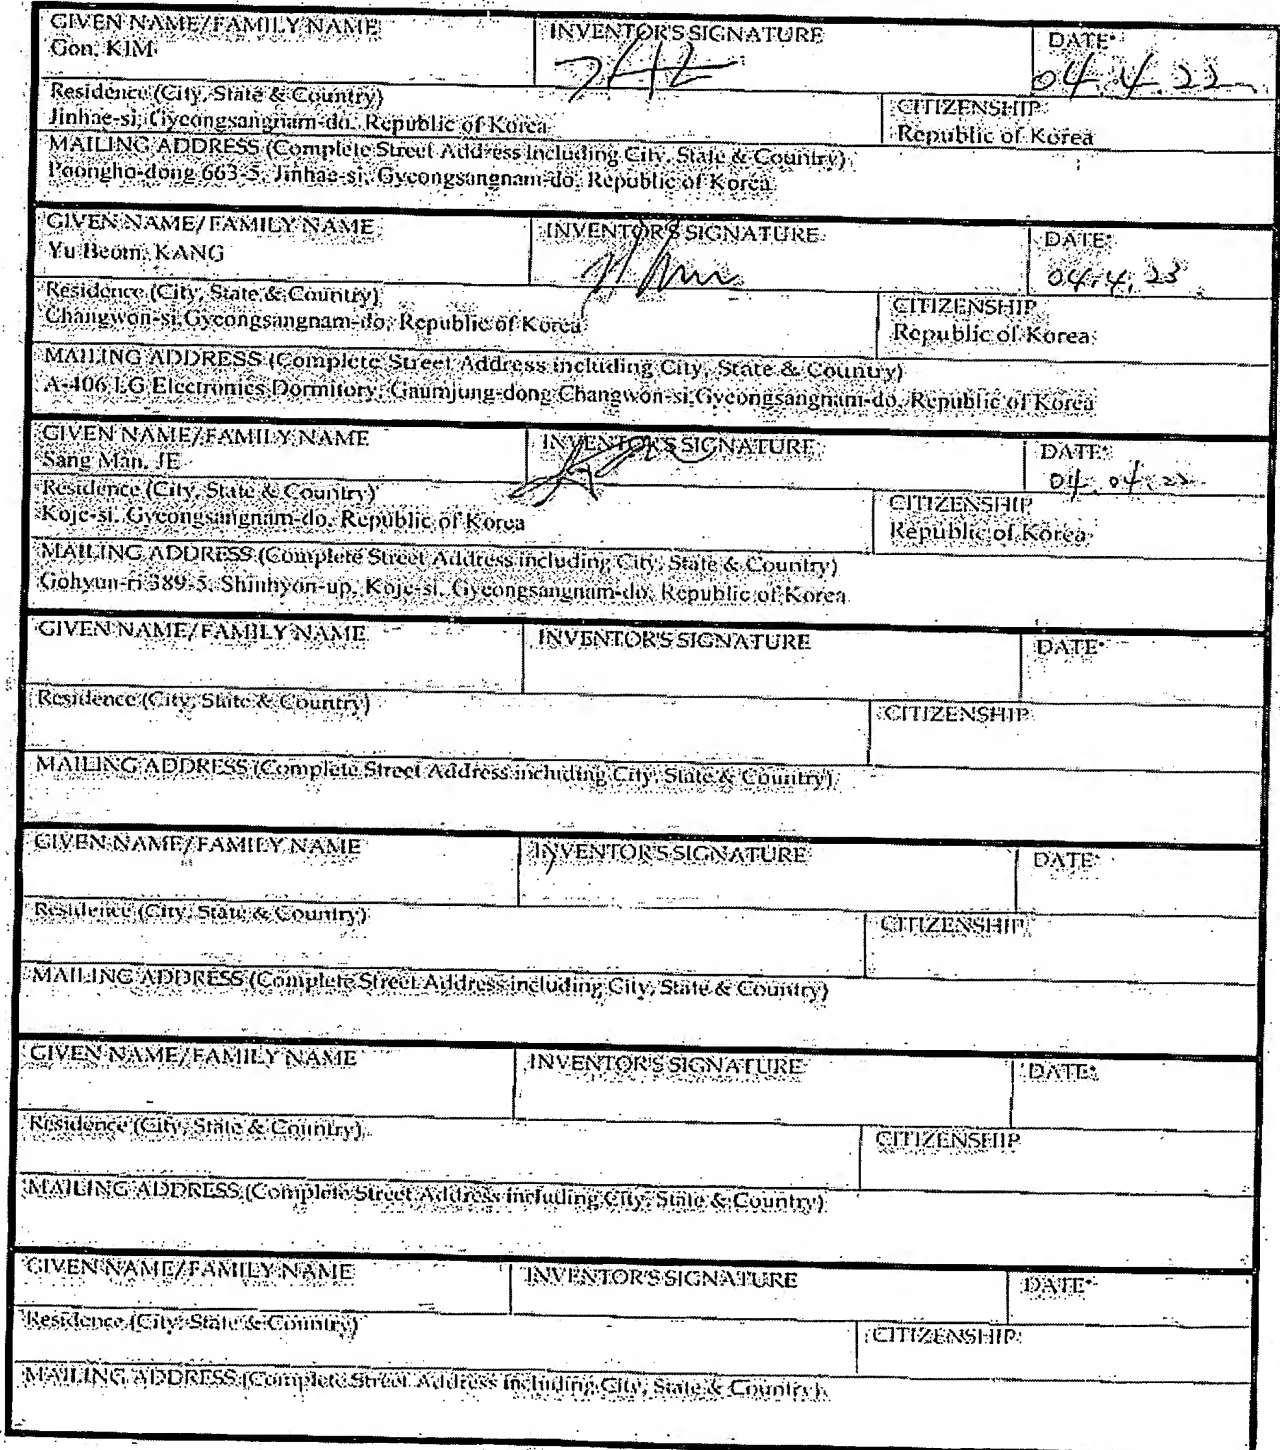 GIVEN NAME/FAMILY NAME INVENTOR'S SIGNATURE DATE*
Gon, KIM 04.4.22
Residence (City, State & Country) CITIZENSHIP
Jinhae-si, Gyeongsangnam-do, Republic of Korea Republic of Korea
MAILING ADDRESS (Complete Street Address including City, State & Country)
Poongho-dong 663-5, Jinhae-si, Gyeongsangnam-do, Republic of Korea
GIVEN NAME/FAMILY NAME INVENTOR'S SIGNATURE DATE*
Yu Beom, KANG 04.4.23
Residence (City, State & Country) CITIZENSHIP
Changwon-si, Gyeongsangnam-do, Republic of Korea Republic of Korea
MAILING ADDRESS (Complete Street Address including City, State & Country)
A-406 LG Electronics Dormitory, Gaumjung-dong Changwon-si Gyeongsangnam-do, Republic of Korea
GIVEN NAME/FAMILY NAME INVENTOR'S SIGNATURE DATE*
Sang Man, JE 04.04.23
Residence (City, State & Country) CITIZENSHIP
Koje-si, Gyeongsangnam-do, Republic of Korea Republic of Korea
MAILING ADDRESS (Complete Street Address including City, State & Country)
Gohyun-ri 389-5, Shinhyon-up, Koje-si, Gyeongsangnam-do, Republic of Korea
GIVEN NAME/FAMILY NAME INVENTOR'S SIGNATURE DATE*
Residence (City, State & Country) CITIZENSHIP
MAILING ADDRESS (Complete Street Address including City, State & Country)
GIVEN NAME/FAMILY NAME INVENTOR'S SIGNATURE DATE*
Residence (City, State & Country) CITIZENSHIP
MAILING ADDRESS (Complete Street Address including City, State & Country)
GIVEN NAME/FAMILY NAME INVENTOR'S SIGNATURE DATE*
Residence (City, State & Country) CITIZENSHIP
MAILING ADDRESS (Complete Street Address including City, State & Country)
GIVEN NAME/FAMILY NAME INVENTOR'S SIGNATURE DATE*
Residence (City, State & Country) CITIZENSHIP
MAILING ADDRESS (Complete Street Address including City, State & Country)